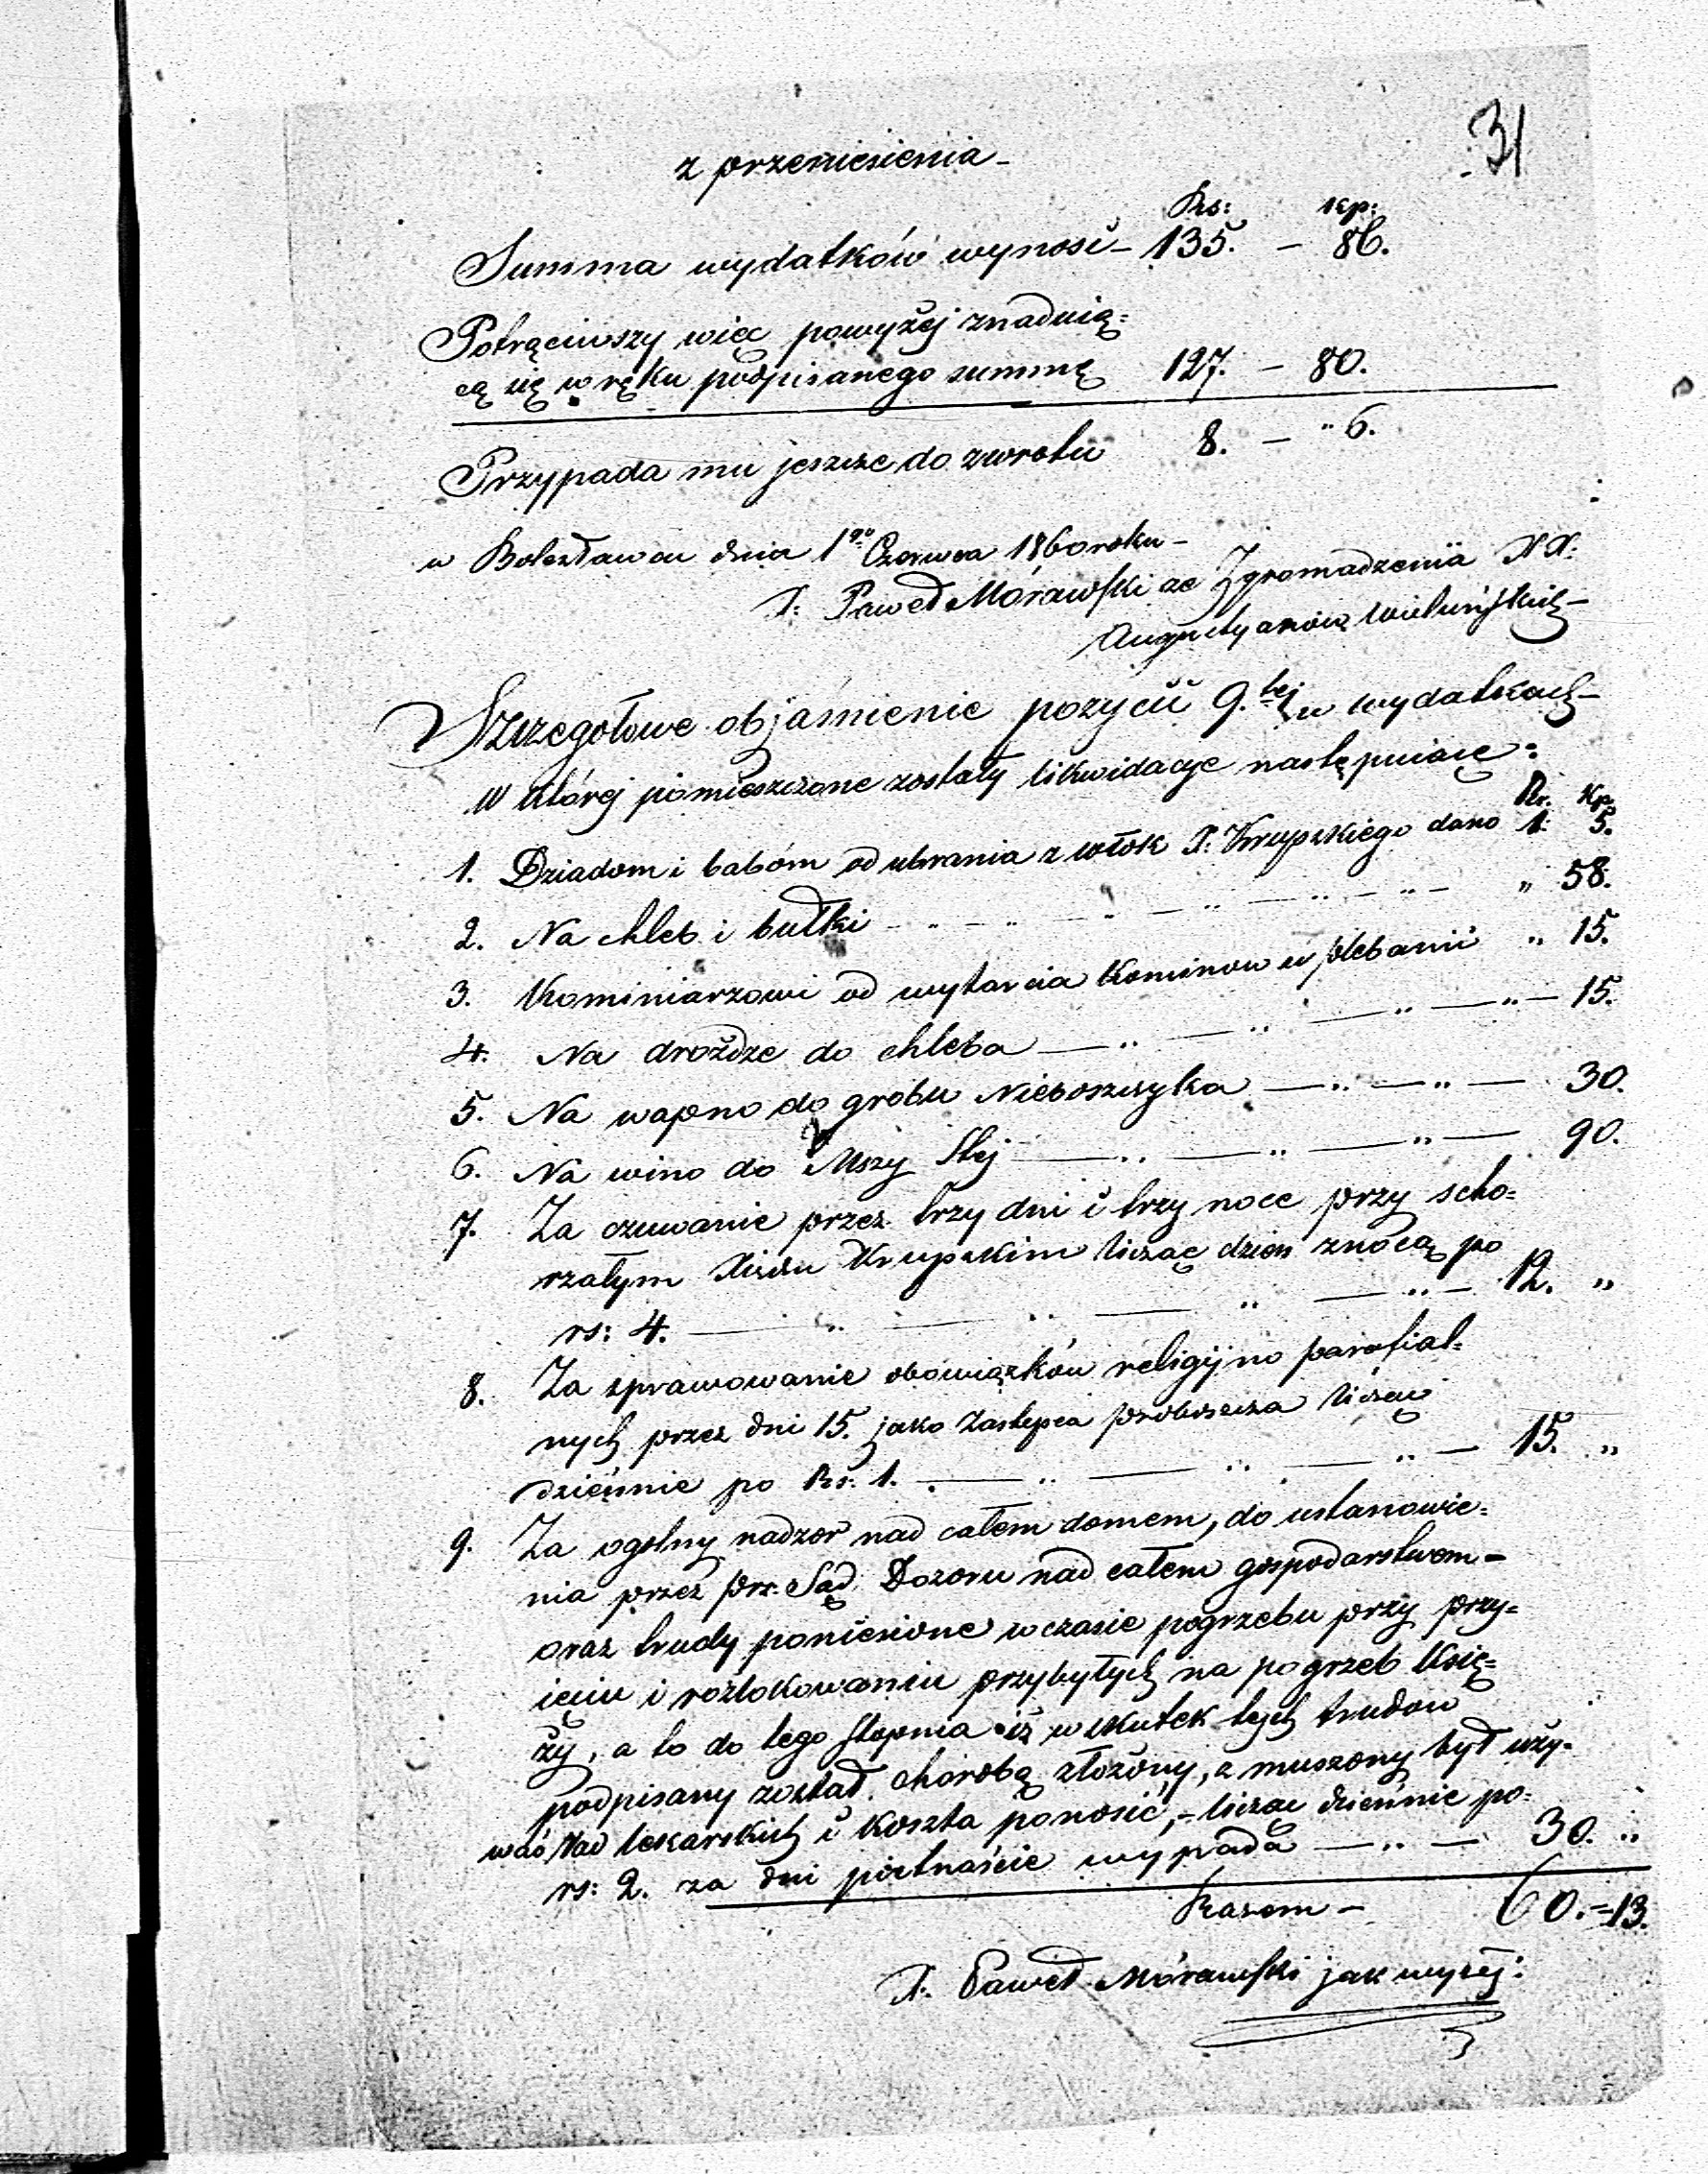 31
z przeniesienia -
Rs: kp:
Summa wydatków wynosi - 135. - 86.
Potrąciwszy więc powyżej znaduią=
cą się w ręku podpisanego summę 127. - 80.
Przypada mu jeszcze do zwrotu 8. - " 6.
w Bolesławcu dnia 1go Czerwca 1860 roku -
X. Paweł Mórawski ze Zgromadzenia XX:
Augustyanów Wieluńskich -
Szczegołowe objaśnienie pozycii 9.tej w wydatkach -
W której pomieszczone zostały likwidacye następuiące:
Rs. Kp.
1. Dziadom i babóm od ubrania zwłok X. Krupskiego dano 1: 5.
2. Na chleb i bułki - " - " - " - " - " - " - " 58.
3. Kominiarzowi od wytarcia Kominow w plebanii " 15.
4. Na drożdze do chleba — " — " — " — " — 15.
5. Na wapno do grobu Nieboszczyka — " — " — 30.
6. Na wino do Mszy Stej — " — " — " — 90.
7. Za czuwanie przez trzy dni i trzy noce przy scho=
rzałym Xiędzu Krupskim licząc dzien z nocą po
rs: 4. — " — " — " — " — 12. "
8. Za sprawowanie obowiązków religijno parafial=
nych przez dni 15. jako Zastępca proboszcza licząc
dzieńnie po Rs. 1. — " — " — " — 15. "
9. Za ogolny nadzor nad całem domem, do ustanowie=
nia przez prz. Sąd Dozoru nad całem gospodarstwem -
oraz trudy poniesione w czasie pogrzebu przy przy=
ięciu i rozlokowaniu przybyłych na pogrzeb Księ=
ży, a to do tego stopnia iż w skutek tych trudow
podpisany został chorobą złożony, zmuszony był uży=
wać rad lekarskich i koszta ponosić, - licząc dzieńnie po
rs: 2. za dni piętnaście wypada — " — 30. "
Razem - 60. = 13.
X. Paweł Mórawski jak wyżej: